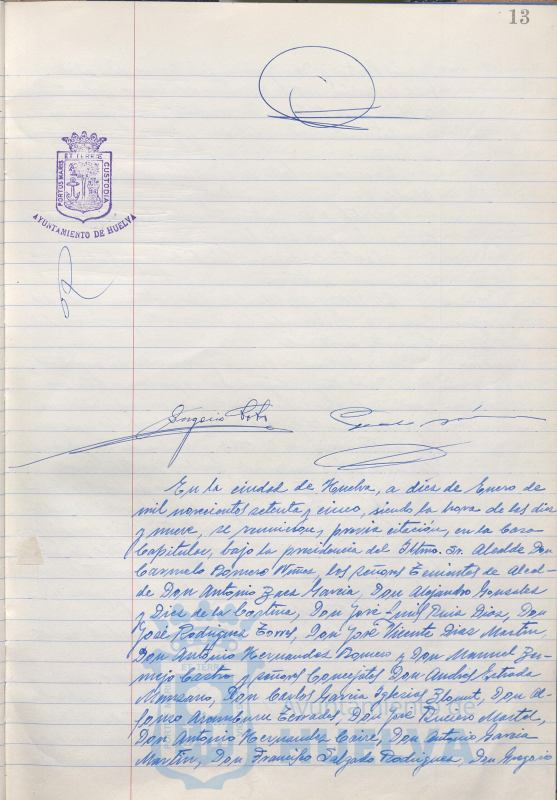 13
PORTUS MARIS ET TERRAE CUSTODIA
AYUNTAMIENTO DE HUELVA
En la ciudad de Huelva, a diez de Enero de
mil novecientos setenta y cinco, siendo la hora de las diez
y nueve, se reunieron, previa citación, en la Casa
Capitular, bajo la presidencia del Iltmo. Sr. Alcalde Don
Carmelo Romero Núñez, los señores Tenientes de Alcal-
de Don Antonio García, Don Alejandro Gonzalez
y Diez de la Cortina, Don José Luis Ruiz Diaz, Don
José Rodriguez Torres, Don José Vicente Diaz Martin,
Don Antonio Hernandez Romero y Don Manuel Ber-
mejo Castro y señores Concejales Don Andres Estrada
Manzano, Don Carlos García Iglesias, Don Al-
fonso Aramburu Terrades, Don José Martel,
Don Antonio Hernandez, Don Antonio García
Martín, Don Francisco Salgado Rodriguez, Don Gregorio
Ayuntamiento de
HUELVA